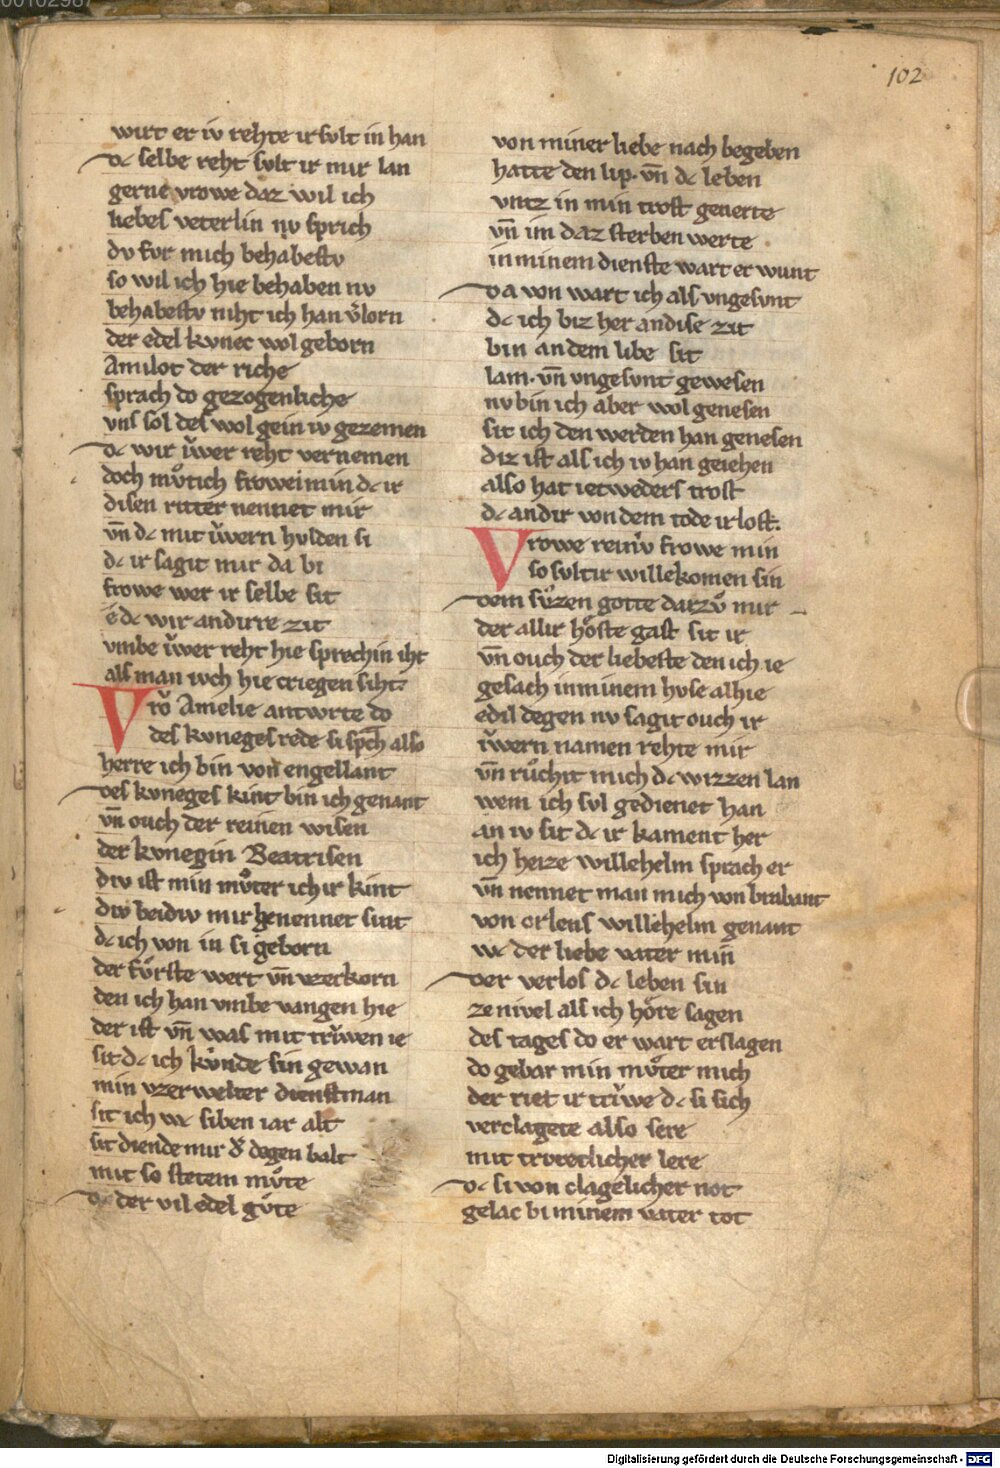 00102987
102
wirt er iv rehte ir svlt in han
dc selbe reht svlt ir mir lan
gerne vrowe daz wil ich
liebes veterlin nv sprich
dv fvr mich behabestv
so wil ich hie behaben nv
behabestv niht ich han v̓lorn
der edel kvnec wol geborn
Amilot der riche
sprach do gezogenliche
vns sol des wol gein iv gezemen
dc wir v̓wer reht vernemen
doch mv̊t ich frowe imin dc ir
disen ritter nennet mir
vn̄ dc mit v̓wern hvlden si
dc ir sagit mir da bi
frowe wer ir selbe sit
e dc wir andirre zit
vmbe v̓wer reht hie sprechin iht
als man ivch hie criegen siht
Vro̓ Amelie antwrte do
des kvneges rede si sp̄ch also
herre ich bin von engellant
des kvneges kint bin ich genant
vn̄ ouch der reinen wisen
der kvnegin Beatrisen
div ist min mv̊ter ich ir kint
div beidiv mir benennet sint
dc ich von in si geborn
der fv̓rste wert vn̄ vzerkorn
den ich han vmbe vangen hie
der ist vn̄ was mit triwen ie
sit dc ich kv̓nde sin gewan
min vzerwelter dienstman
sit ich wc siben iar alt
sit diende mir d̓ degen balt
mit so stetem mv̊te
dc der vil edel gv̊te
von miner liebe nach begeben
hatte den lip. vn̄ dc leben
vntz in min trost generte
vn̄ im daz sterben werte
in minem dienste wart er wunt
da von wart ich als vngesvnt
dc ich biz her an dise zit
bin an dem libe sit
lam. vn̄ vngesvnt gewesen
nv bin ich aber wol genesen
sit ich den werden han genesen
diz ist als ich iv han geiehen
also hat ietweders trost
dc andir von dem tode irlost.
Vrowe reiniv frowe min
so svlt ir willekomen sin
dem sv̓zen gotte darzv̊ mir
der allir ho̓ste gast sit ir
vn̄ ouch der liebeste den ich ie
gesach in minem hvse alhie
edil degen nv sagit ouch ir
v̓wern namen rehte mir
vn̄ rv̊chit mich dc wizzen lan
wem ich svl gedienet han
an iv sit dc ir kament her
ich heize willehelm sprach er
vn̄ nennet man mich von brabant
von orlens willehelm genant
wc der liebe vater min
der verlos dc leben sin
ze nivel als ich ho̓re sagen
des tages do er wart erslagen
do gebar min mv̊ter mich
der riet ir triwe dc si sich
verclagete also sere
mit trvreclicher lere
dc si von clagelicher not
gelac bi minem vater tot
Digitalisierung gefördert durch die Deutsche Forschungsgemeinschaft - DFG